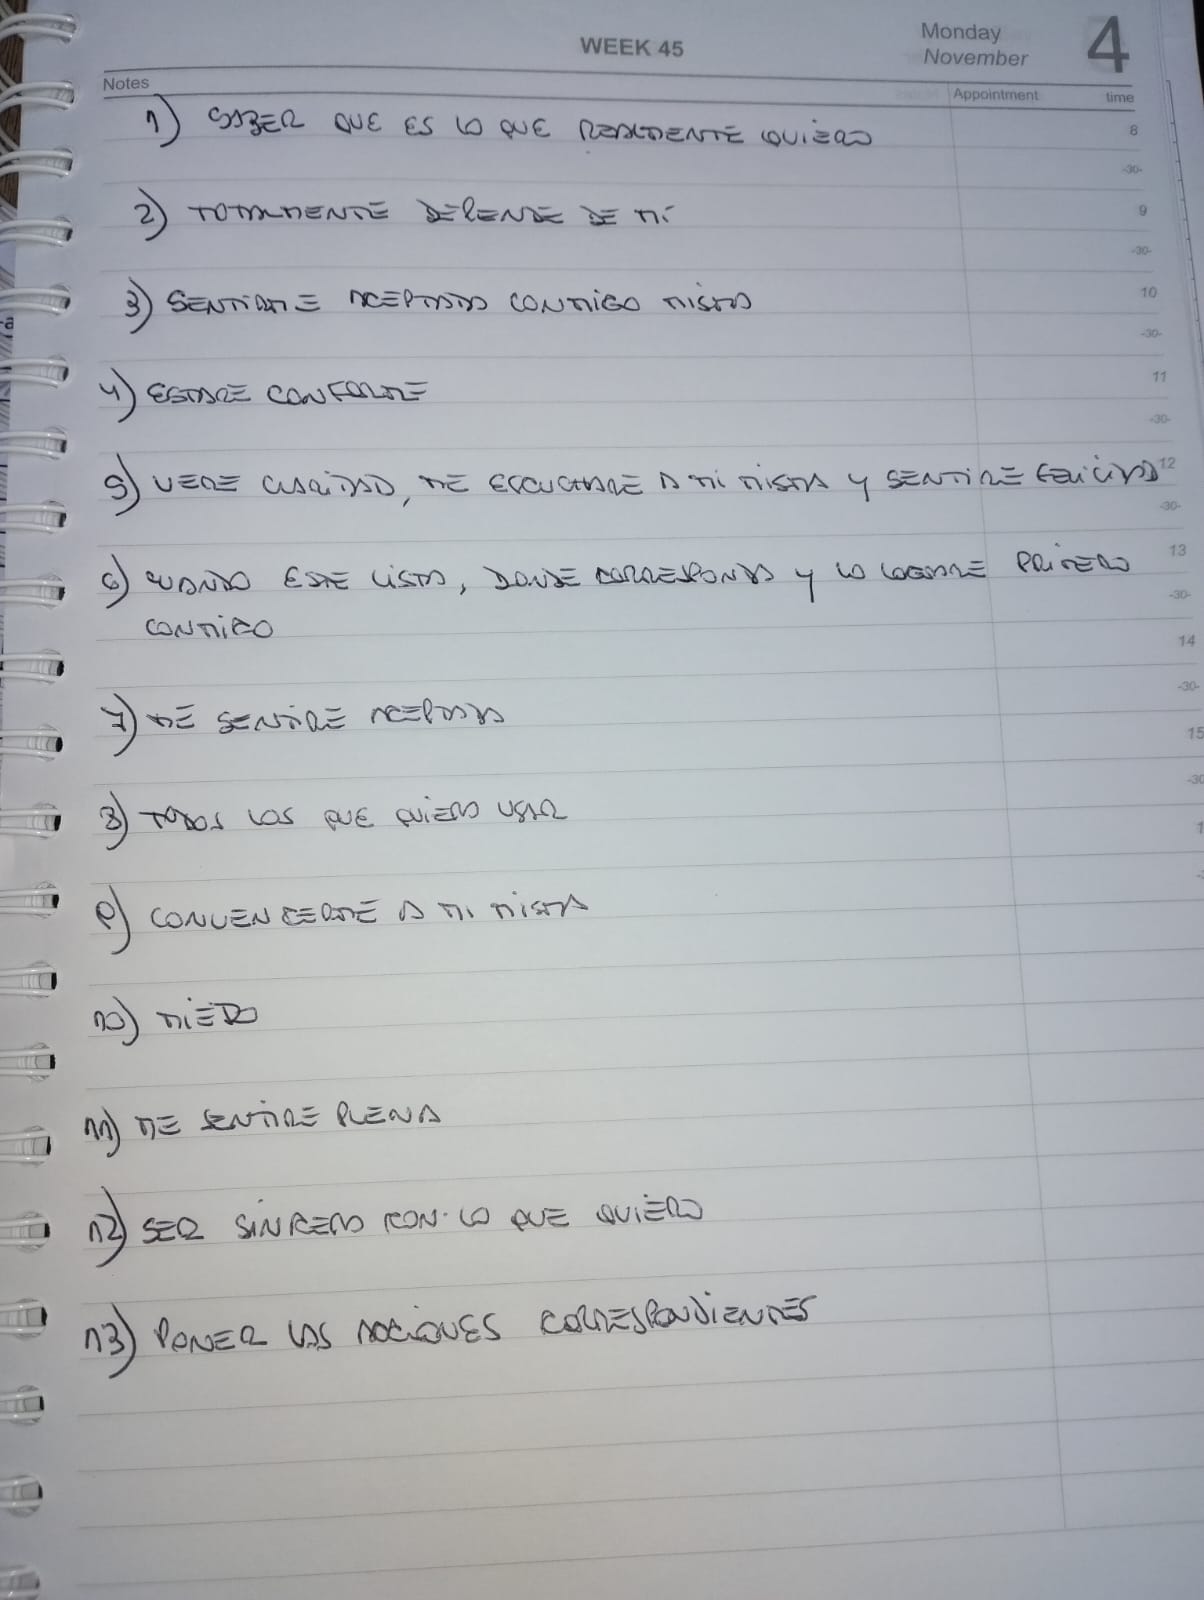 WEEK 45
Monday
November
4
Notes
Appointment
time
1) SABER QUE ES LO QUE REALMENTE QUIERO
8
-30-
2) TOTALMENTE DEPENDE DE MÍ
9
-30-
3) SENTIRME ACEPTADA CONMIGO MISMA
10
-30-
4) ESTARE CONFORME
11
-30-
5) VERE CLARIDAD, ME ESCUCHARE A MI MISMA Y SENTIRE FELICIDAD
12
-30-
6) CUANDO ESTE LISTA, DONDE CORRESPONDA Y LO LOGRARE PRIMERO
13
-30-
CONMIGO
14
-30-
7) ME SENTIRE ACEPTADA
15
-30
8) TODOS LOS QUE QUIERO USAR
1
9) CONVENCERME A MI MISMA
10) MIEDO
11) ME SENTIRE PLENA
12) SER SINCERA CON LO QUE QUIERO
13) PONER LAS ACCIONES CORRESPONDIENTES